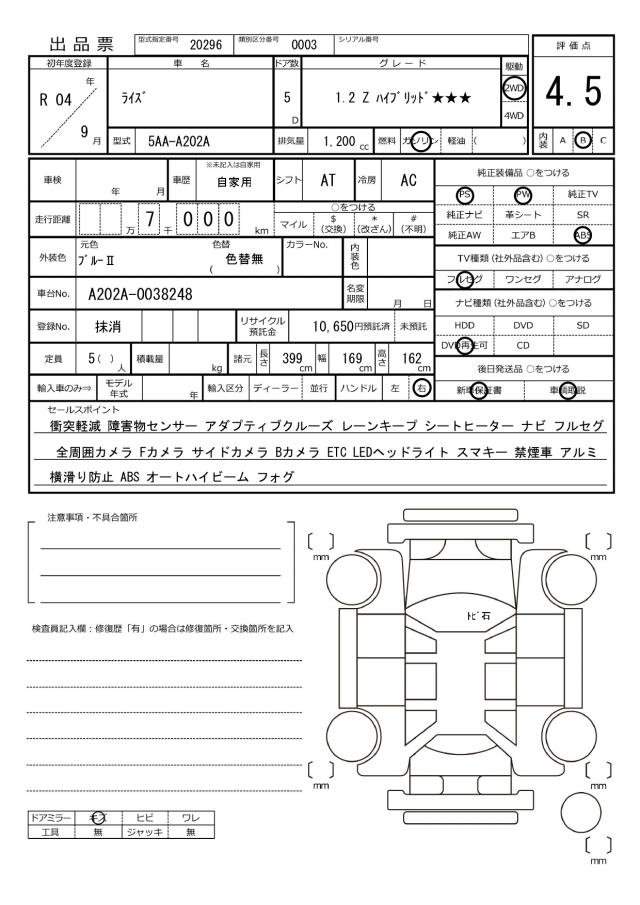 出品票 型式指定番号 20296 類別区分番号 0003 シリアル番号
評価点
4.5
内装 A B C
初年度登録 車名 ドア数 グレード 駆動
R 04 年 9 月 ライズ 5 D 1.2 Z ハイブリッド★★★ 2WD 4WD
型式 5AA-A202A 排気量 1.200 cc 燃料 ガソリン 軽油 ( )
車検 年 月 車歴 ※未記入は自家用 自家用 シフト AT 冷房 AC
走行距離 万 7 千 0 0 0 km ○をつける
マイル $(交換) *(改ざん) #(不明)
外装色 元色 ブルーⅡ 色替 ( 色替無 ) カラーNo. 内装色
車台No. A202A-0038248 名変期限 月 日
登録No. 抹消 リサイクル預託金 10,650円預託済 未預託
定員 5( ) 人 積載量 kg 諸元 長さ 399 cm 幅 169 cm 高さ 162 cm
輸入車のみ⇒ モデル年式 年 輸入区分 ディーラー ・ 並行 ハンドル 左 右
純正装備品 ○をつける
PS PW 純正TV
純正ナビ 革シート SR
純正AW エアB ABS
TV種類(社外品含む) ○をつける
フルセグ ワンセグ アナログ
ナビ種類(社外品含む) ○をつける
HDD DVD SD
DVD再生可 CD
後日発送品 ○をつける
新車保証書 車輌取説
セールスポイント
衝突軽減 障害物センサー アダプティブクルーズ レーンキープ シートヒーター ナビ フルセグ
全周囲カメラ Fカメラ サイドカメラ Bカメラ ETC LEDヘッドライト スマキー 禁煙車 アルミ
横滑り防止 ABS オートハイビーム フォグ
注意事項・不具合箇所
検査員記入欄：修復歴「有」の場合は修復箇所・交換箇所を記入
ドアミラー キズ ヒビ ワレ
工具 無 ジャッキ 無
〔 〕 mm
〔 〕 mm
トビ石
〔 〕 mm
〔 〕 mm
〔 〕 mm